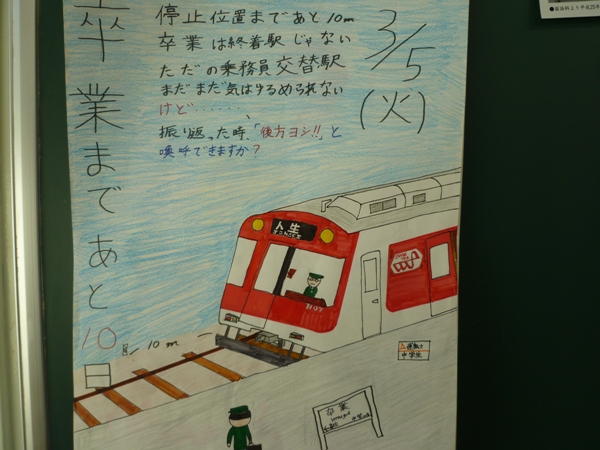 卒業まであと10日
停止位置まであと10m
卒業は終着駅じゃない
ただの乗務員交替駅
まだまだ気はゆるめられない
けど……、
振り返った時、「後方ヨシ!!」と
喚呼できますか?
3/5
(火)
人生
10m
運転士
中学生
卒業